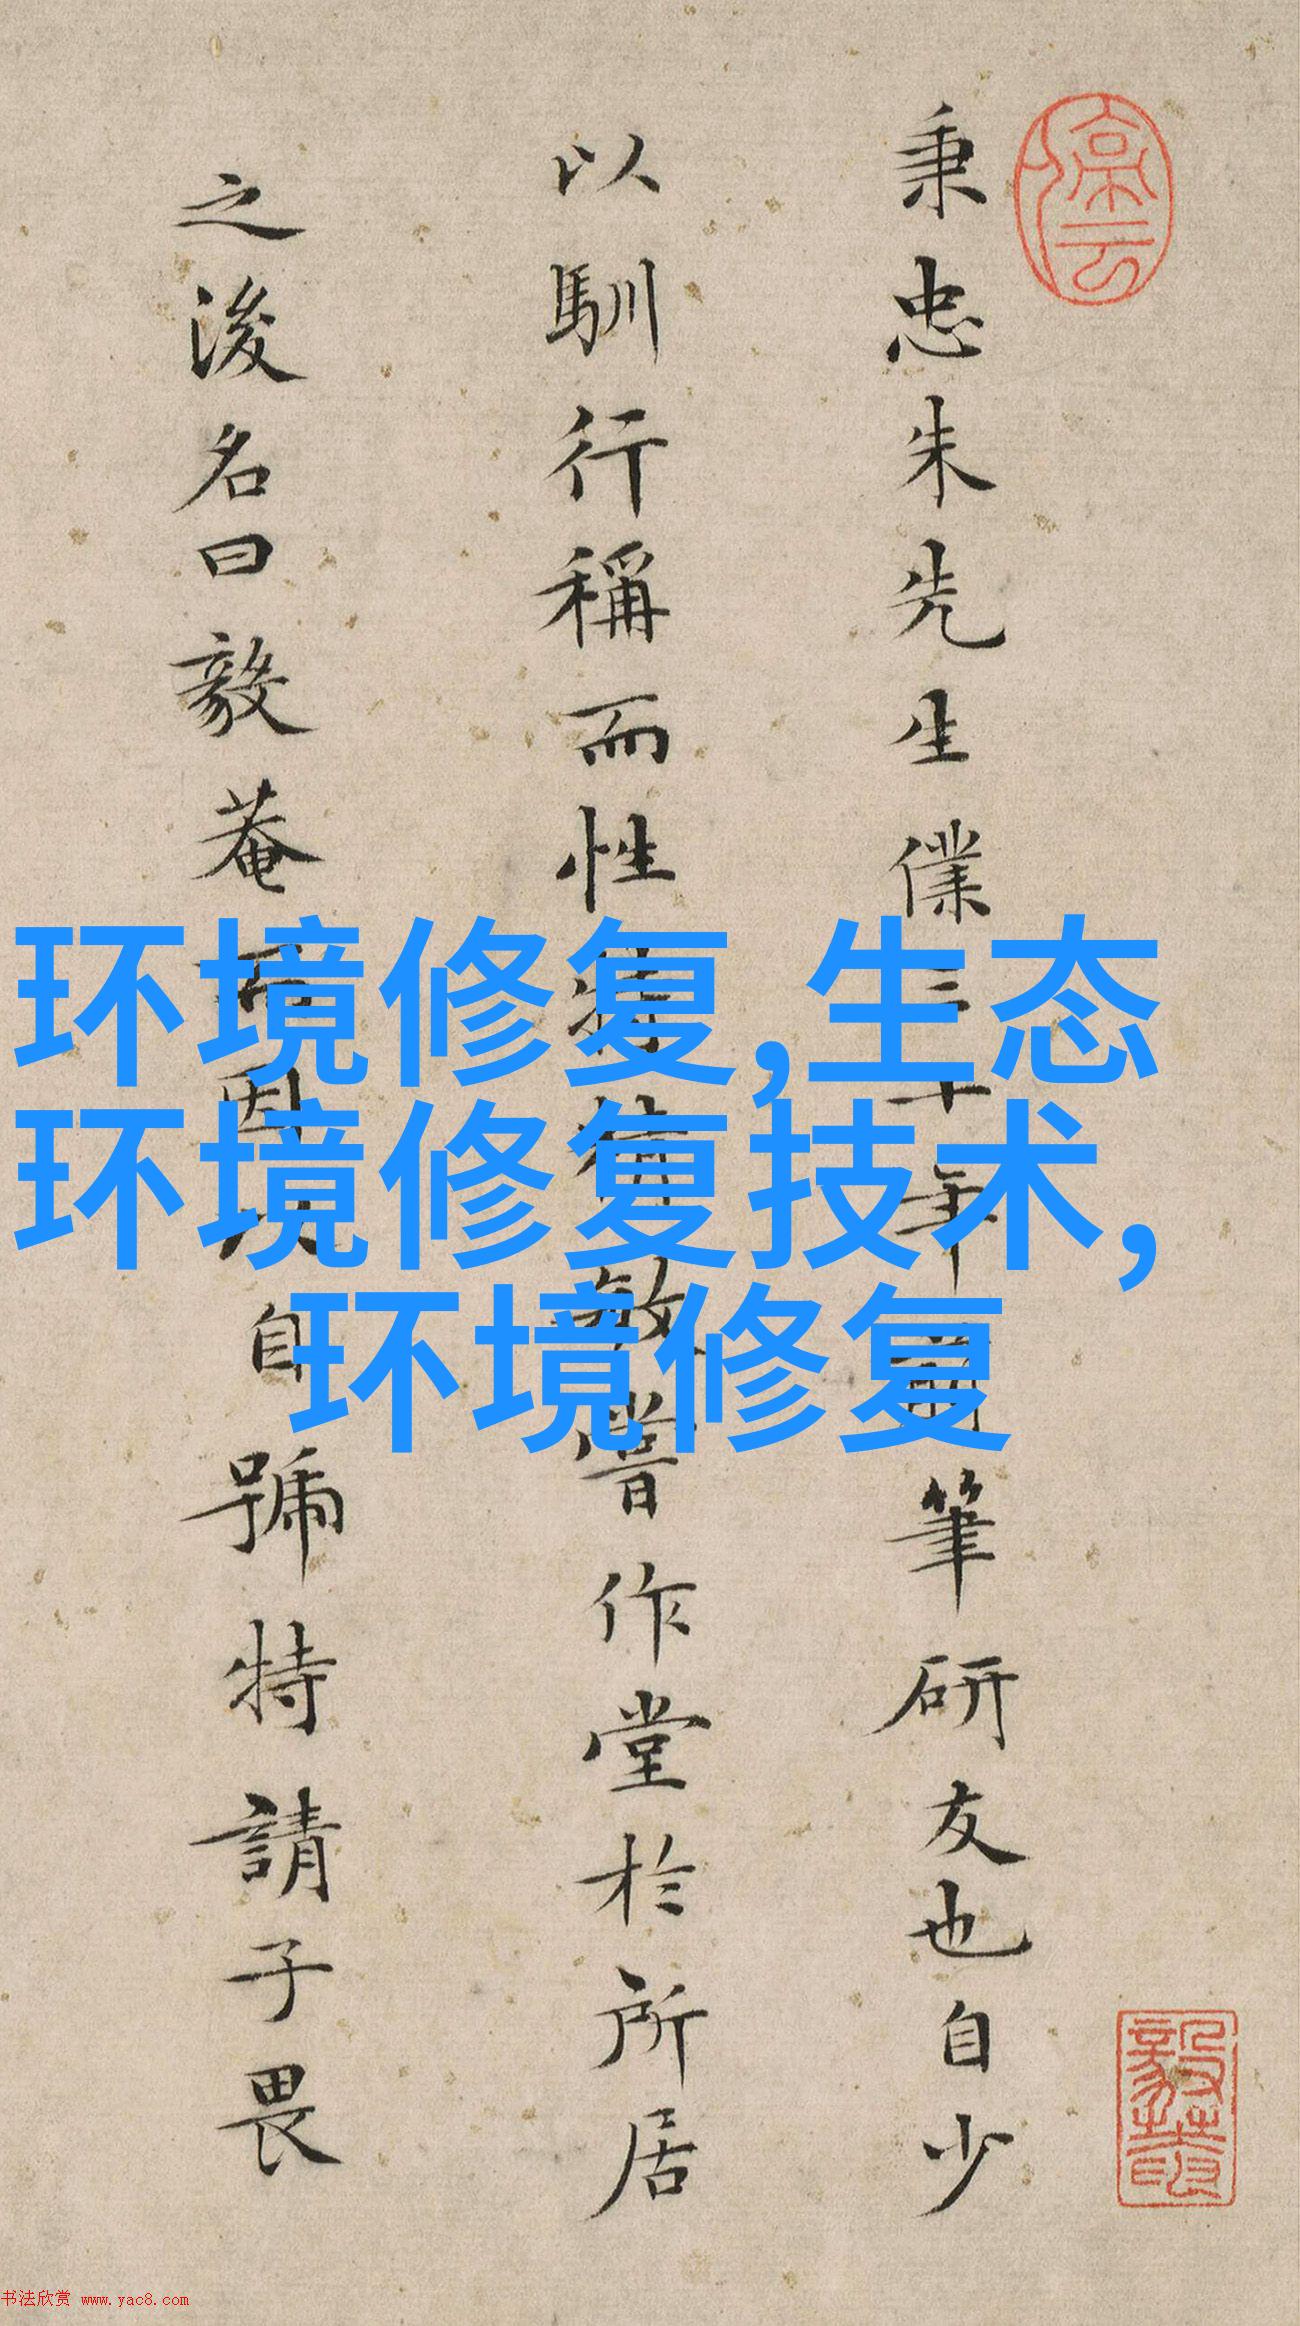 秉忠朱先生僕三十年前筆研友也自少
以馴行稱而性特精敏嘗作堂於所居
之後名曰毅菴而因以自號特請子畏
停云
环境修复,生态
环境修复技术,
环境修复
书法欣赏 www.yac8.com